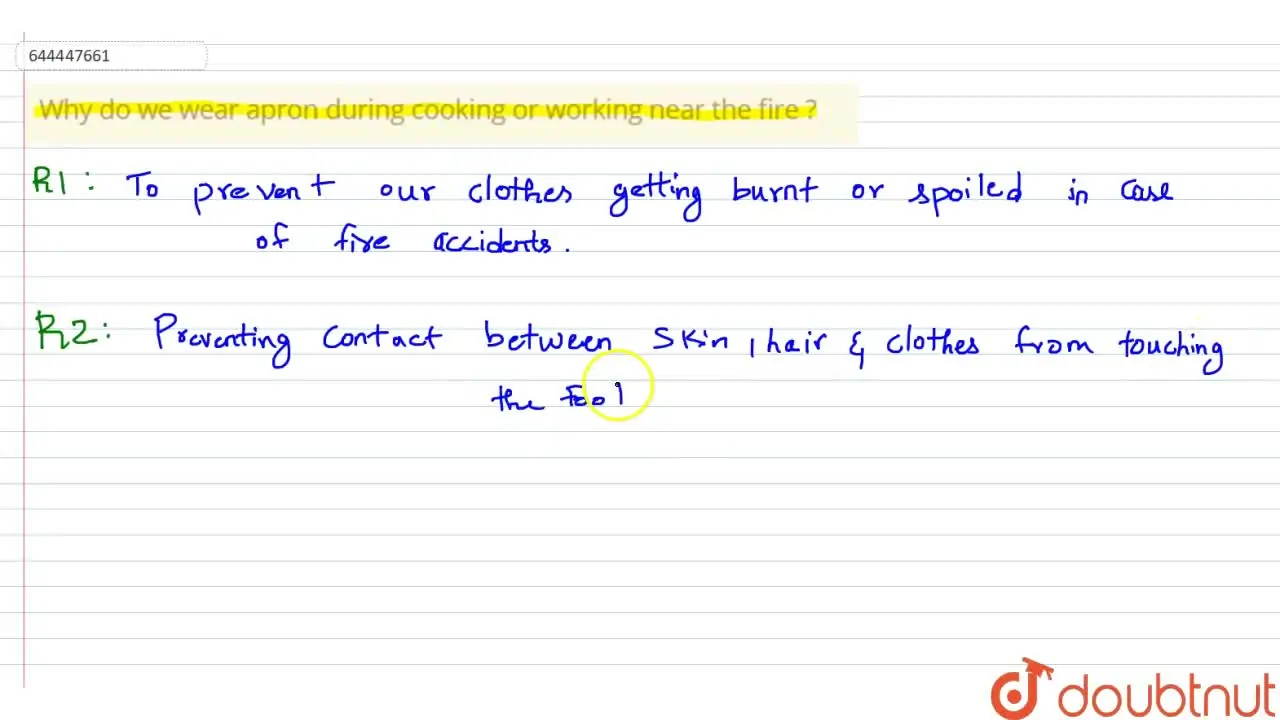 644447661
Why do we wear apron during cooking or working near the fire ?
R1 : To prevent our clothes getting burnt or spoiled in case
of fire accidents.
R2 : Preventing contact between skin , hair & clothes from touching
the foo
doubtnut